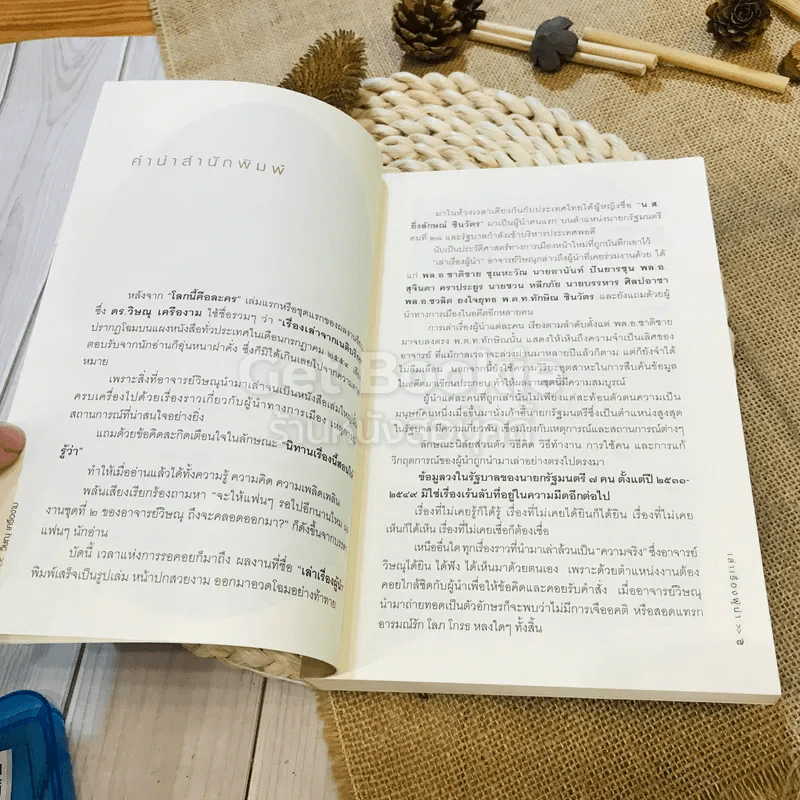 คำนำสำนักพิมพ์
หลังจาก "โลกนี้คือละคร" เล่มแรกหรือชุดแรกของผลงานเขียน
ซึ่ง ดร.วิษณุ เครืองาม ใช้ชื่อรวมๆ ว่า "เรื่องเล่าจากเนติบริกร"
ปรากฏโฉมบนแผงหนังสือทั่วประเทศในเดือนกรกฎาคม ๒๕๕๔ เสียง
ตอบรับจากนักอ่านก็อุ่นหนาฝาคั่ง ซึ่งก็มิได้เกินเลยไปจากความคาด
หมาย
เพราะสิ่งที่อาจารย์วิษณุนำมาเล่าจนเป็นหนังสือเล่มใหญ่
ครบเครื่องไปด้วยเรื่องราวเกี่ยวกับผู้นำทางการเมือง เหตุการณ์
สถานการณ์ที่น่าสนใจอย่างยิ่ง
แถมด้วยข้อคิดสะกิดเตือนใจในลักษณะ "นิทานเรื่องนี้สอนให้
รู้ว่า"
ทำให้เมื่ออ่านแล้วได้ทั้งความรู้ ความคิด ความเพลิดเพลิน
พลันเสียงเรียกร้องถามหา "จะให้แฟนๆ รอไปอีกนานไหม
งานชุดที่ ๒ ของอาจารย์วิษณุ ถึงจะคลอดออกมา?" ก็ดังขึ้นจาก
แฟนๆ นักอ่าน
บัดนี้ เวลาแห่งการรอคอยก็มาถึง ผลงานที่ชื่อ "เล่าเรื่องผู้นำ"
พิมพ์เสร็จเป็นรูปเล่ม หน้าปกสวยงาม ออกมาอวดโฉมอย่างท้าทาย
มาในห้วงเวลาเดียวกันกับประเทศไทยได้ผู้หญิงชื่อ "น.ส.
ยิ่งลักษณ์ ชินวัตร" มาเป็นผู้นำคนแรก บนตำแหน่งนายกรัฐมนตรี
คนที่ ๒๘ และรัฐบาลกำลังเข้าบริหารประเทศพอดี
นับเป็นประวัติศาสตร์ทางการเมืองหน้าใหม่ที่ถูกบันทึกเอาไว้
"เล่าเรื่องผู้นำ" อาจารย์วิษณุกล่าวถึงผู้นำที่เคยร่วมงานด้วย ได้
แก่ พล.อ.ชาติชาย ชุณหะวัณ นายอานันท์ ปันยารชุน พล.อ.
สุจินดา คราประยูร นายชวน หลีกภัย นายบรรหาร ศิลปอาชา
พล.อ.ชวลิต ยงใจยุทธ พ.ต.ท.ทักษิณ ชินวัตร และยังแถมด้วยผู้
นำทางการเมืองในอดีตอีกหลายคน
การเล่าเรื่องผู้นำแต่ละคน เรียงตามลำดับตั้งแต่ พล.อ.ชาติชาย
มาจบลงตรง พ.ต.ท.ทักษิณนั้น แสดงให้เห็นถึงความจำเป็นเลิศของ
อาจารย์ ที่แม้กาลเวลาจะล่วงผ่านมาหลายปีแล้วก็ตาม แต่ก็ยังจำได้
ไม่ลืมเลือน นอกจากนี้ยังใช้ความวิริยะอุตสาหะในการสืบค้นข้อมูล
ในอดีตมาเขียนประกอบ ทำให้ผลงานชุดนี้มีความสมบูรณ์
ผู้นำแต่ละคนที่ถูกเล่านั้นไม่เพียงแต่สะท้อนตัวตนความเป็น
มนุษย์คนหนึ่งเมื่อขึ้นมานั่งเก้าอี้นายกรัฐมนตรีซึ่งเป็นตำแหน่งสูงสุด
ในรัฐบาล มีความเกี่ยวพัน เชื่อมโยงกับเหตุการณ์และสถานการณ์ต่างๆ
ลักษณะนิสัยส่วนตัว วิธีคิด วิธีทำงาน การใช้คน และการแก้
วิกฤตการณ์ของผู้นำถูกนำมาเล่าอย่างตรงไปตรงมา
ข้อมูลวงในรัฐบาลของนายกรัฐมนตรี ๗ คน ตั้งแต่ปี ๒๕๓๑-
๒๕๔๙ มิใช่เรื่องเร้นลับที่อยู่ในความมืดอีกต่อไป
เรื่องที่ไม่เคยรู้ก็ได้รู้ เรื่องที่ไม่เคยได้ยินก็ได้ยิน เรื่องที่ไม่เคย
เห็นก็ได้เห็น เรื่องที่ไม่เคยเชื่อก็ต้องเชื่อ
เหนืออื่นใด ทุกเรื่องราวที่นำมาเล่าล้วนเป็น "ความจริง" ซึ่งอาจารย์
วิษณุได้ยิน ได้ฟัง ได้เห็นมาด้วยตนเอง เพราะด้วยตำแหน่งงานต้อง
คอยใกล้ชิดกับผู้นำเพื่อให้ข้อคิดและคอยรับคำสั่ง เมื่ออาจารย์วิษณุ
นำมาถ่ายทอดเป็นตัวอักษรก็จะพบว่าไม่มีการเจืออคติ หรือสอดแทรก
อารมณ์รัก โลภ โกรธ หลงใดๆ ทั้งสิ้น
เล่าเรื่องผู้นำ >> จ
Get Bookie